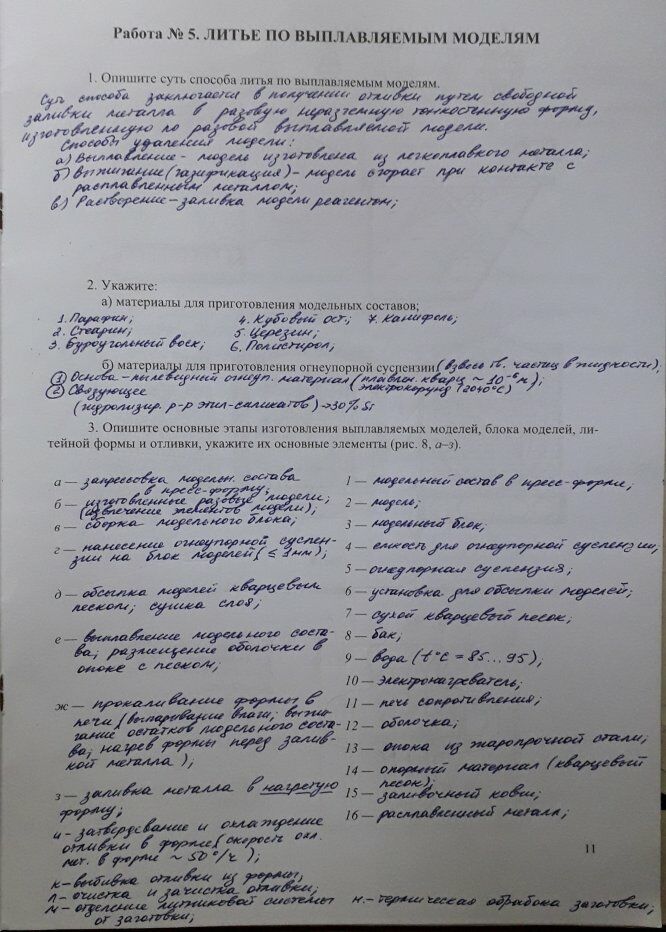 Работа № 5. ЛИТЬЕ ПО ВЫПЛАВЛЯЕМЫМ МОДЕЛЯМ
1. Опишите суть способа литья по выплавляемым моделям.
Суть способа заключается в получении отливки путем свободной
заливки металла в разовую неразъемную тонкостенную форму,
изготовленную по разовой выплавляемой модели.
Способы удаления модели:
а) Выплавление - модель изготовлена из легкоплавкого металла;
б) Выжигание (газификация) - модель сгорает при контакте с
расплавленным металлом;
в) Растворение - заливка модели реагентом;
2. Укажите:
а) материалы для приготовления модельных составов;
1. Парафин; 4. Кубовый ост.; 7. Канифоль;
2. Стеарин; 5. Церезин;
3. Буроугольный воск; 6. Полистирол;
б) материалы для приготовления огнеупорной суспензии (взвесь тв. частиц в жидкости);
1 Основа - пылевидный огнеуп. материал (плавлен. кварц ~ 10⁻⁶ м);
2 Связующее (электрокорунд (2040°С)
(гидролизир. р-р этил-силикатов) → 30% Si
3. Опишите основные этапы изготовления выплавляемых моделей, блока моделей, ли-
тейной формы и отливки, укажите их основные элементы (рис. 8, а–з).
а — запрессовка модельн. состава
в пресс-форму;
б — изготовленные разовые модели;
(извлечение элементов модели);
в — сборка модельного блока;
г — нанесение огнеупорной суспен-
зии на блок моделей (≤ 1мм);
д — обсыпка моделей кварцевым
песком; сушка слоя;
е — выплавление модельного соста-
ва; размещение оболочки в
опоке с песком;
ж — прокаливание формы в
печи (выпаривание влаги; выжи-
гание остатков модельного соста-
ва; нагрев формы перед залив-
кой металла);
з — заливка металла в нагретую
форму;
и - затвердевание и охлаждение
отливки в форме (скорость охл.
мет. в форме ~ 50°/ч);
к - выбивка отливки из формы;
л - очистка и зачистка отливки;
м - отделение литниковой системы
от заготовки;
1 — модельный состав в пресс-форме;
2 — модель;
3 — модельный блок;
4 — емкость для огнеупорной суспензии;
5 — огнеупорная суспензия;
6 — установка для обсыпки моделей;
7 — сухой кварцевый песок;
8 — бак;
9 — вода (t°С = 85...95);
10 — электронагреватель;
11 — печь сопротивления;
12 — оболочка;
13 — опока из жаропрочной стали;
14 — опорный материал (кварцевый
песок);
15 — заливочный ковш;
16 — расплавленный металл;
н. - термическая обработка заготовки;
11